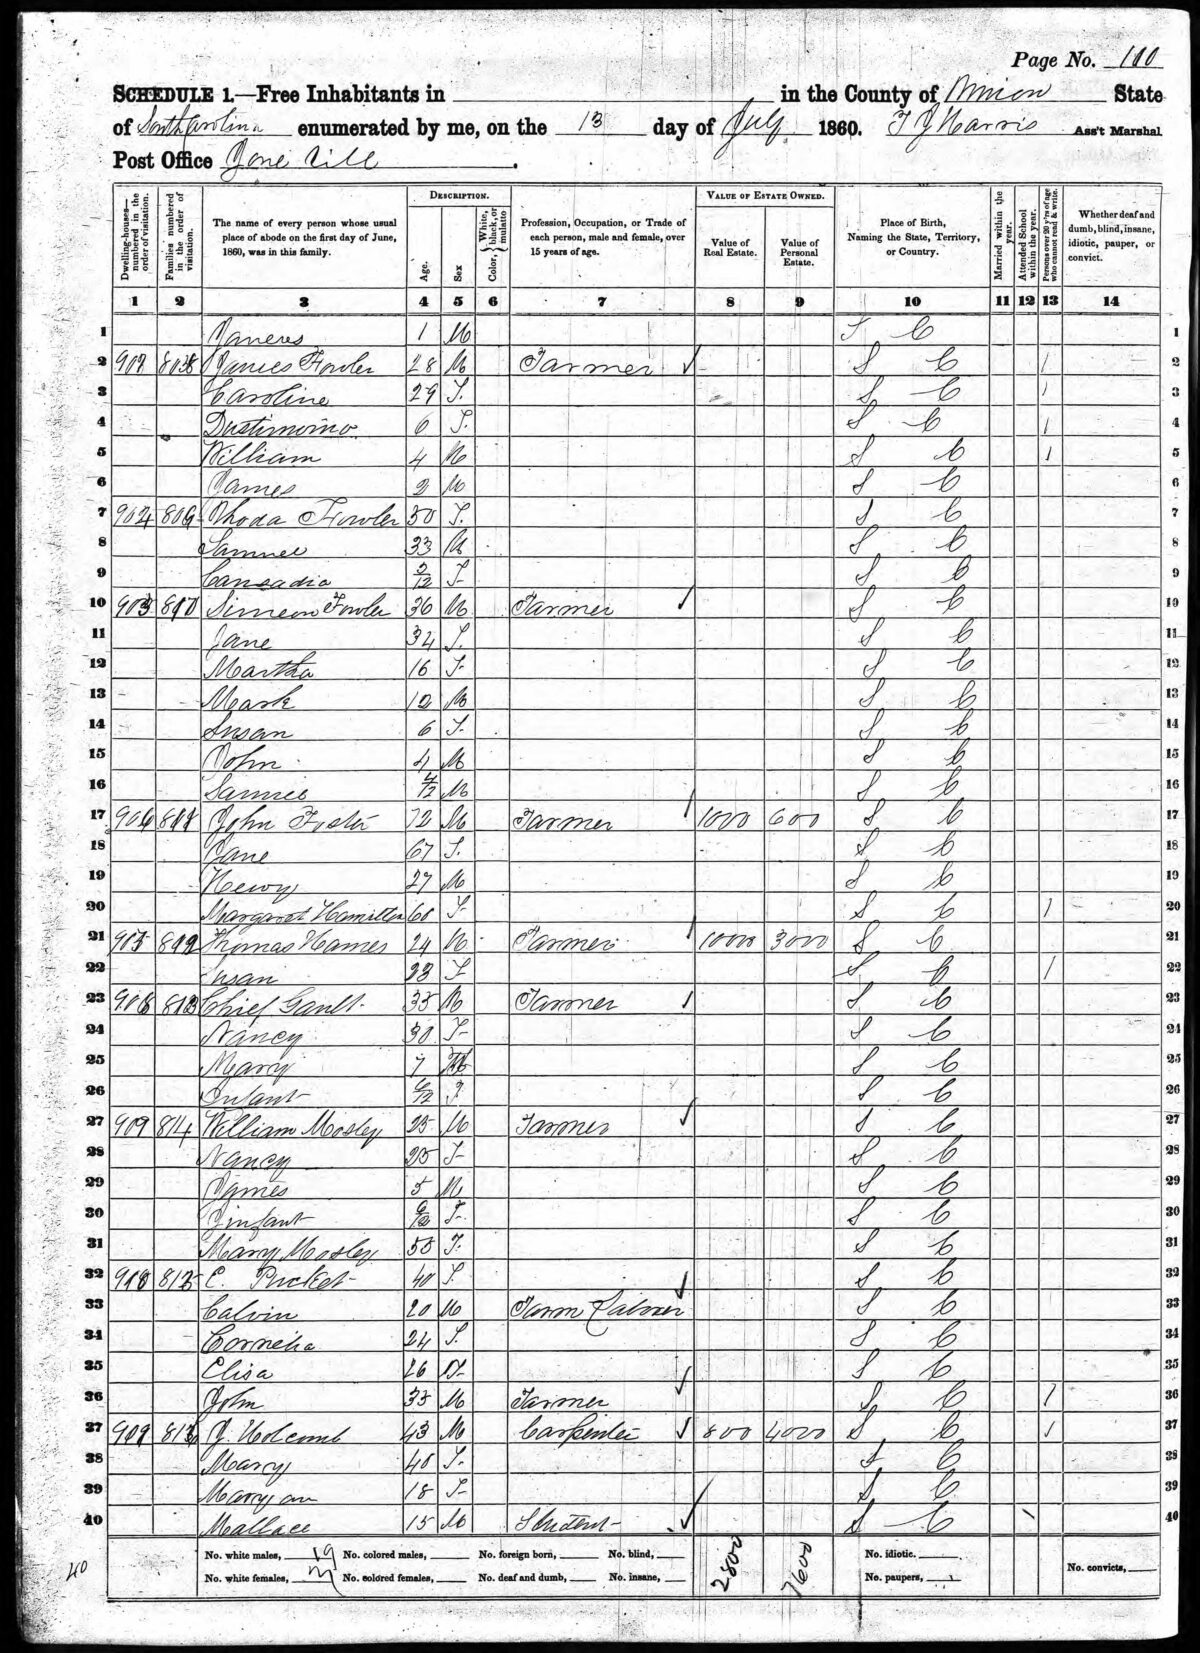 Page No. 110
SCHEDULE 1.—Free Inhabitants in in the County of Union State
of South Carolina enumerated by me, on the 13 day of July 1860. T J Harris Ass't Marshal
Post Office Jone ville .
Dwelling-houses—numbered in the order of visitation.
Families numbered in the order of visitation.
The name of every person whose usual place of abode on the first day of June, 1860, was in this family.
DESCRIPTION.
Age.
Sex
Color, { White, black, or mulatto
Profession, Occupation, or Trade of each person, male and female, over 15 years of age.
VALUE OF ESTATE OWNED.
Value of Real Estate.
Value of Personal Estate.
Place of Birth, Naming the State, Territory, or Country.
Married within the year.
Attended School within the year.
Persons over 20 y'rs of age who cannot read & write.
Whether deaf and dumb, blind, insane, idiotic, pauper, or convict.
1 2 3 4 5 6 7 8 9 10 11 12 13 14
1 1 M S C 1
2 James Fowler 28 M Farmer S C 1 2
3 Caroline 29 F S C 1 3
4 6 F S C 1 4
5 William 4 M S C 1 5
6 James 2 M S C 6
7 904 Rhoda Fowler F S C 7
8 Samuel 33 M S C 8
9 F S C 9
10 903 Simeon Fowler 36 M Farmer S C 10
11 Jane 34 F S C 11
12 Martha 16 F S C 12
13 Mark 12 M S C 13
14 Susan 6 F S C 14
15 John 4 M S C 15
16 M S C 16
17 John Foster 72 M Farmer 1000 600 S C 17
18 Jane 67 F S C 18
19 27 M S C 19
20 Margaret Hamilton 60 F S C 1 20
21 Thomas Hames 24 M Farmer 1000 3000 S C 21
22 Susan 23 F S C 1 22
23 Chief Gault 35 M Farmer S C 23
24 Nancy 30 F S C 24
25 Mary 7 S C 25
26 Infant 6/12 F S C 26
27 909 814 William Mosley 25 M Farmer S C 27
28 Nancy 25 F S C 28
29 James 5 M S C 29
30 Infant F S C 30
31 Mary Mosley F S C 31
32 815 E. Pucket 40 F S C 32
33 Calvin 20 M Farm Laborer S C 33
34 Cornelia 24 F S C 34
35 Elisa 26 F S C 35
36 John 35 M Farmer S C 1 36
37 909 J. Holcomb 43 M Carpenter 800 4000 S C 1 37
38 Mary 40 F S C 38
39 Mary an 18 F S C 39
40 Wallace 15 M Student S C 1 40
40
No. white males, 19 No. colored males, No. foreign born, No. blind, 2800 7600 No. idiotic.
No. white females, 21 No. colored females, No. deaf and dumb, No. insane, No. paupers, No. convicts,